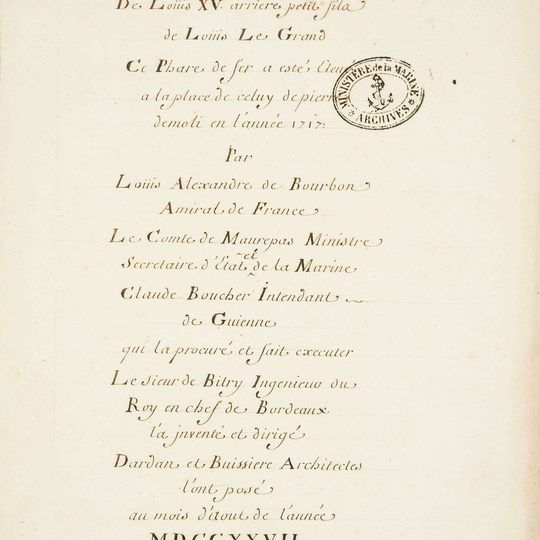 De Loüis XV. arriere petit fils
de Loüis Le Grand
Ce Phare de fer a esté
a la place de celuy de pierre
demoli en l'année 1717.
MINISTÈRE de la MARINE
ARCHIVES
Par
Loüis Alexandre de Bourbon
Amiral de France
Le Comte de Maurepas Ministre
et
Secretaire d'Etat de la Marine
Claude Boucher Intendant
de Guienne
qui la procuré et fait executer
Le sieur de Bitry Ingenieur du
Roy en chef de Bordeaux
l'a jnventé et dirigé
Dardan et Buissiere Architectes
l'ont posé
au mois d'aout de l'année
MDCCXXVII